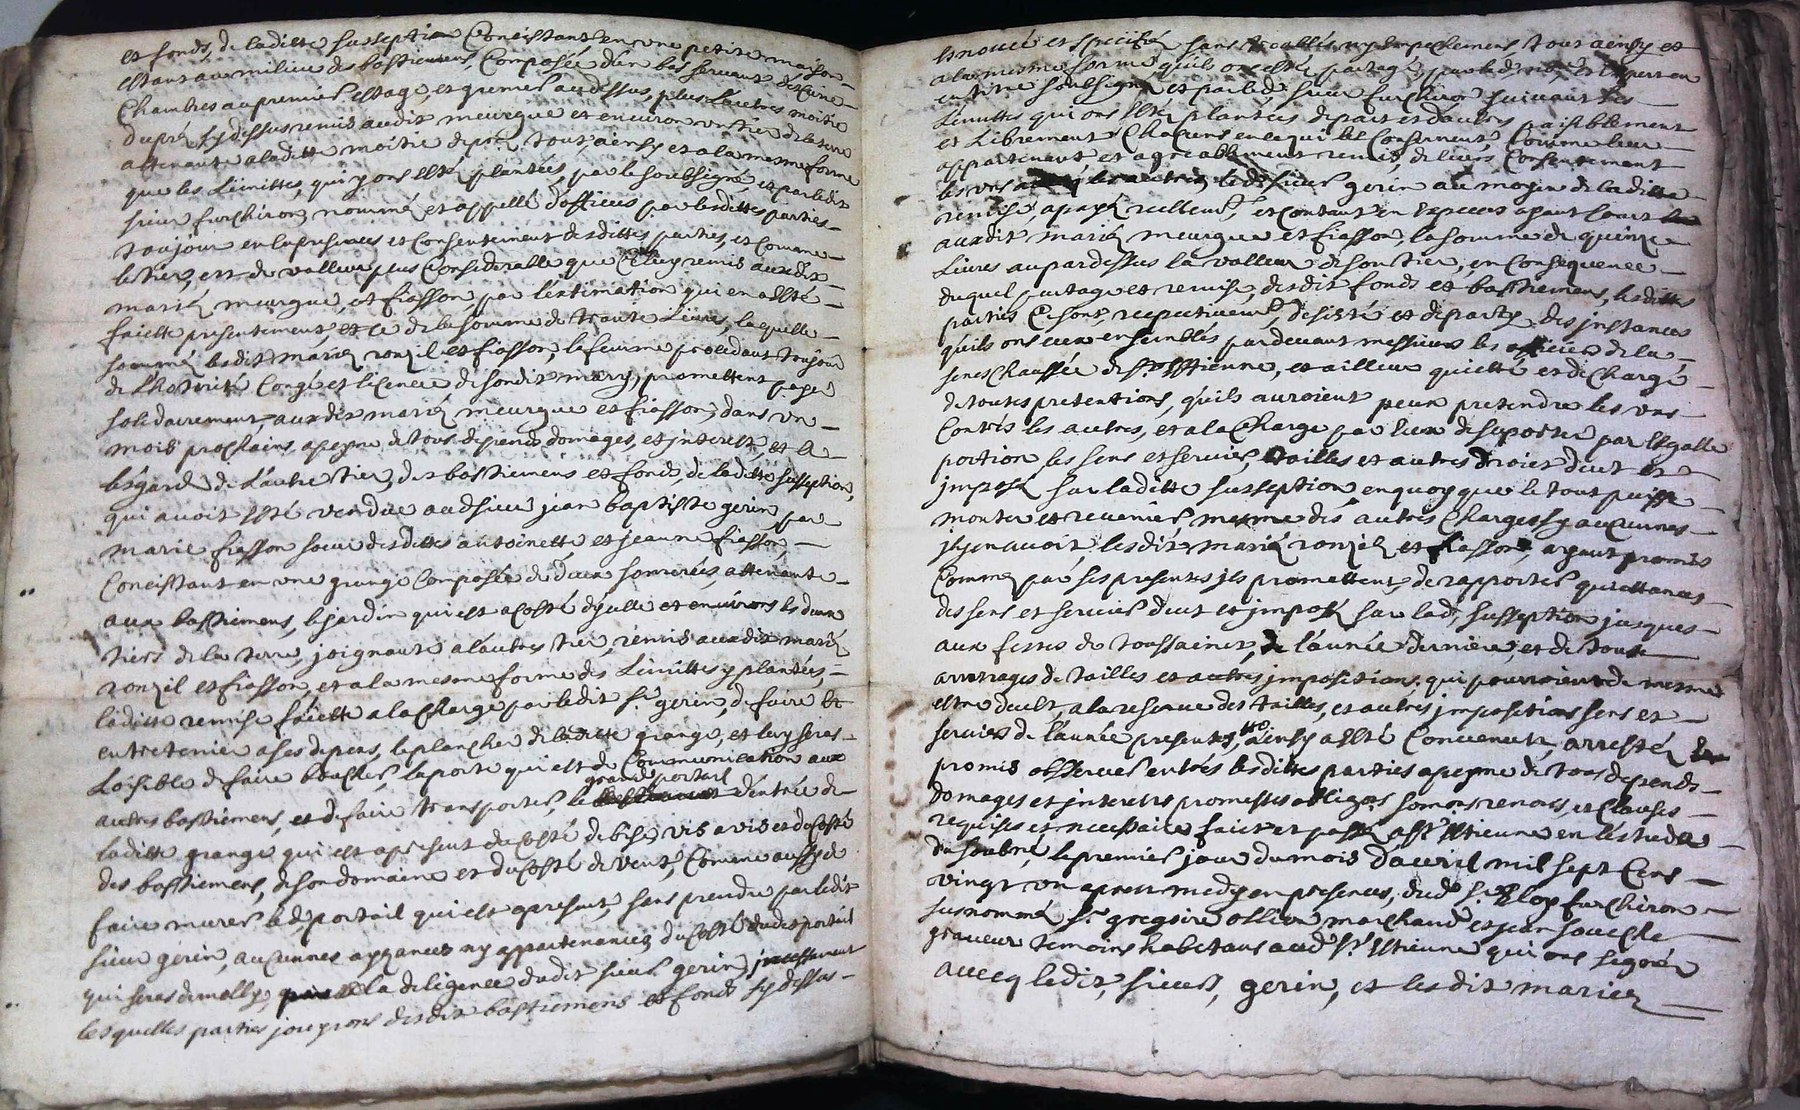 et fonds, de laditte susseption Concistant en une petite maison
estant au milieu des bastiemens, Composée d'un bas servant de Cune
Chambres au premier estage, et grenier au dessus, plus l'autres moitié
Dupré sy dessus remis audit meurgue et environ un tier de la terre
attenante a laditte moitié de pré, tout ainsy et a la mesme forme
que les Limittes, qui y ons esté plantées, par le soubsigné, et par ledit
sieur furchiron nommé et appellé d'offices par lesdittes parties
toujour en la presences et Consentement desdittes parties, et Comme
le tier, est de valleur plus Considerable que Celluy remis auxdit
mariés meurgue et fiasson par l'estimation qui en a esté
faiette presentement, et ce de la somme de trante Livres, laquelle
somme, lesdit mariés ronzil et fiasson, la femme procedant toujour
de Lhotorité Congé et licence de sondit mary, promettent payer
solidairement auxdit mariés meurgue et fiasson, dans un
mois prochains, apeyne de tous depends domages, et jnterest, et a
lesgard de l'autre tier, des bastiemens et fonds, de laditte susseption,
qui avoit esté vendue audsieur jean baptiste gerin, par
marie fiasson soeur desdittes antoinette et jeanne fiasson,
Concistant en une grange Composée de deux sommerées, attenante
aux bastiemens, le jardin qui est a costé d'yselle et environs les deux
tiers de la terre, joignante a l'autres tier, remis auxdit mariés
ronzil et fiasson, et a la mesme forme des Limittes y plantées,
laditte remise faiette a la charge par ledit sr. gerin, de faire et
entretenir a ses depens, le planche de laditte grange, et luy seras
Loisible de faire boucher, la porte qui est de Communication aux
grand portail
autres bastiemens, et de faire transporter, le d'entrée de
laditte grange qui est apresent du costé de bise, vis a vis et du costé
des bastiemens, de son domaine et du costé de vent, Comme aussy de
faire murer led. portail qui est apresant, sans prendre par ledit
sieur gerin, aucunnes aysances ny appartenances du costé dudit portail
qui seras demolly, a la deligence dudit sieur gerin, jncessament
lesquelles parties jouyrons desdit bastiemens et fonds sy dessus
Enoncé et speciffié, sans troubles, ny Empechemens tout ainsy et
a la mesme forme qu'ils ons esté partagé, par
soubsigné, et par led. sieur furchiron suivant les
Limittes qui ons esté plantées de part et d'autres paisiblement
et Librement Chacuns en ce qui les Consernent, Comme leur
appartenant et agreablement remis, de leurs Consentement
les uns les autres, led. sieur gerin au moyen de laditte
remise, a payé reellemt. et Contant en Especes ayant Court
auxdit mariés meurgue et fiasson, la somme de quinze
Livres au par dessus la valleur de son tier, en Consequence
duquel partage et remise, desdit fonds et bastiemens, lesdittes
parties se sont respectivemt. desisté et departy des jnstances
qu'ils ons eues ensembles pardevant messieurs les officiers de la
seneschaussée de St. Estienne, et ailleur quietté et dechargé
de toutes pretentions, qu'ils auroient peux pretendre les uns
Contres les autres, et a la Charge par Eux de suporter par Egalle
portion les sens et servies, tailles et autres droiets deut et
jmposé sur laditte susseption en quoy que le tout puisse
monter et revenir mesme des autres Charges sy aucunnes
jl y en avoit, lesdit mariés ronzil et fiasson, ayant promis
Comme par ses presentes jls promettent, de rapporter quittances
des sens et servies deut et jmposé sur lad. susseption jusques
aux festes de toussainct, de l'année derniere, et de tous
arrerages de tailles et autres jmpositions, qui pourroient de mesme
estre deubt, a la reserve des tailles, et autres jmpositions sens et
servies de l'année presentes, ainsy a esté Convenut arresté
promis observer entres lesdittes parties apeyne de tous depends
domages et jnterets promesses obligas somons renons, et Clauses
requises et necessaire faict et passé a St. Estienne en l'estude
du soubné, le premier jour du mois d'avril mil sept Cens
vingt un apres medy en presences, dud. sr. Eloy furchiron
susnommé sr. gregoire ollier marchand et jean souche
graveur temoins habitans aud. St. Estienne qui ons signés
avecq ledit, sieur, gerin, et lesdit mariés